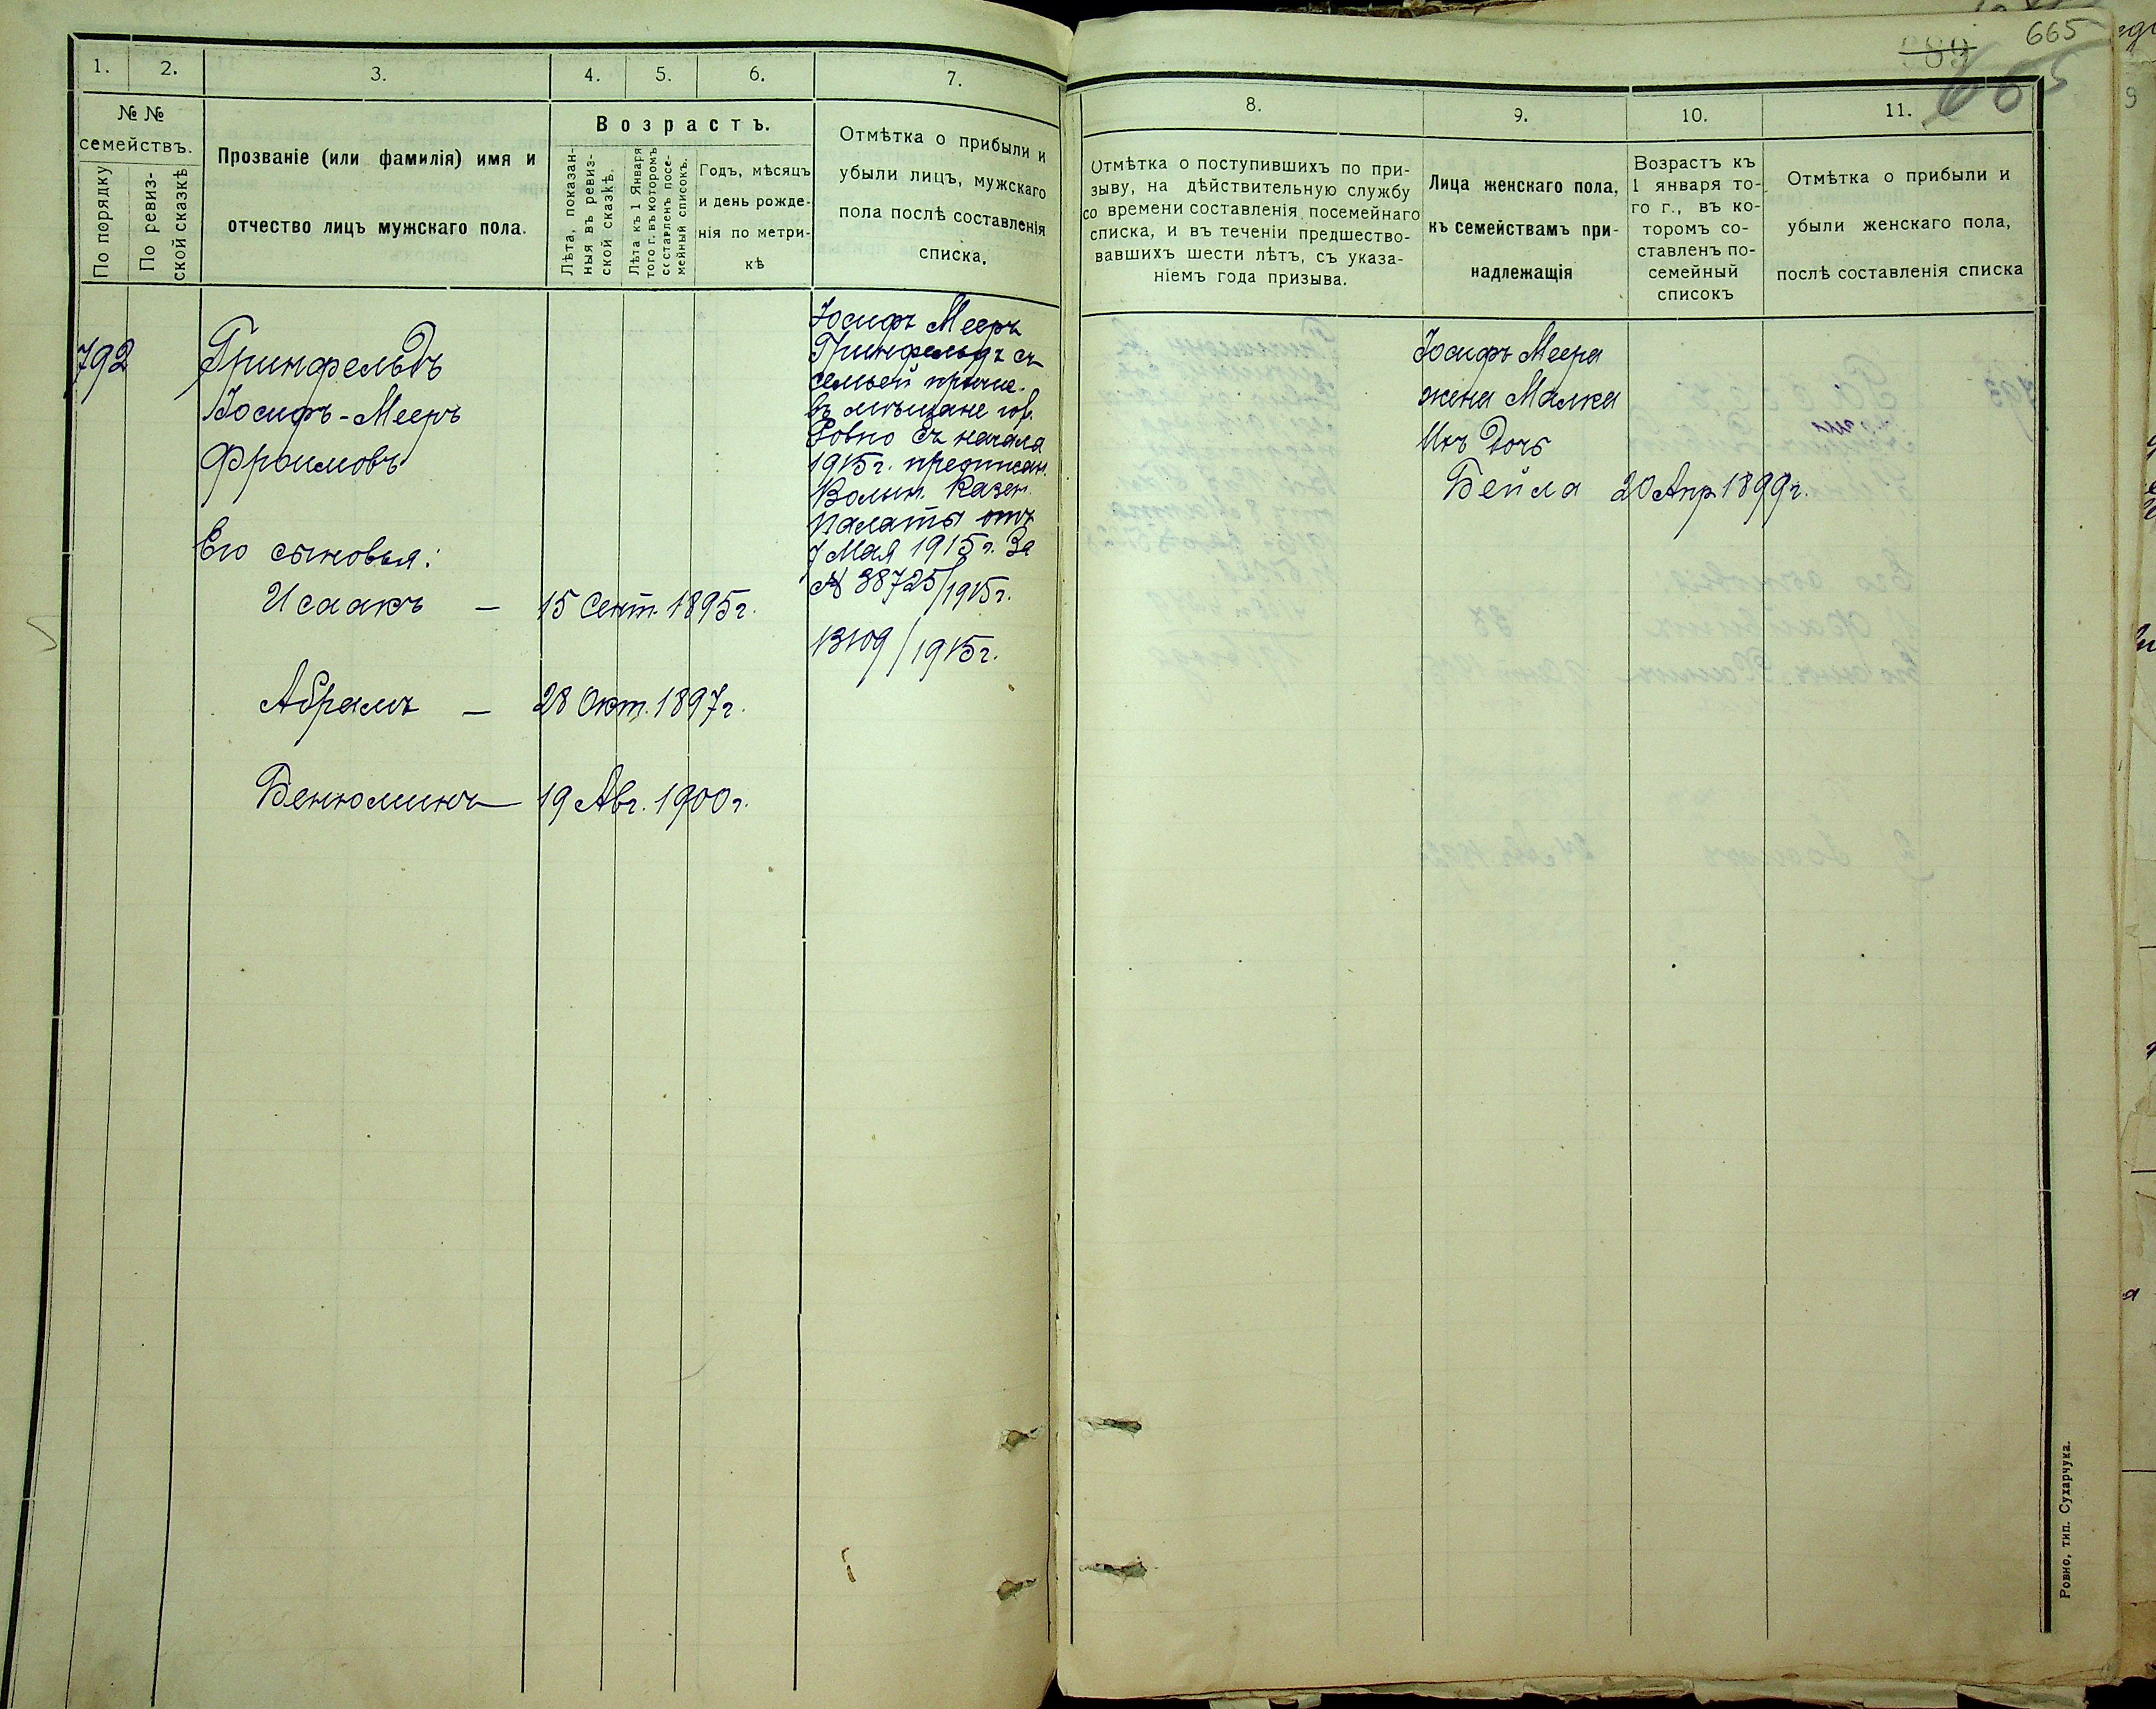 1.
2.
3.
4.
5.
6.
7.
№ №
семействъ.
По порядку
По ревиз-
ской сказкѣ
Прозваніе (или фамилія) имя и
отчество лицъ мужскаго пола.
Возрастъ.
Лѣта, показан-
ныя въ ревиз-
ской сказкѣ.
Лѣта къ 1 Января
того г. въ которомъ
составленъ посе-
мейный списокъ.
Годъ, мѣсяцъ
и день рожде-
нія по метри-
кѣ
Отмѣтка о прибыли и
убыли лицъ, мужскаго
пола послѣ составленія
списка.
792
Гринфельдъ
Іосифъ-Мееръ
Фроимовъ
Его сыновья:
Исаакъ — 15 Сент. 1895 г.
Абрамъ — 28 Окт. 1897 г.
Бенюминъ — 19 Авг. 1900 г.
Іосифъ Мееръ
Гринфельдъ съ
семьей причис.
въ мѣщане гор.
Ровно съ начала
1915 г. предписан.
Волын. Казен.
Палаты отъ
7 Мая 1915 г. За
№ 38725/1915 г.
1915 г.
989
665
665
8.
9.
10.
11.
Отмѣтка о поступившихъ по при-
зыву, на дѣйствительную службу
со времени составленія посемейнаго
списка, и въ теченіи предшество-
вавшихъ шести лѣтъ, съ указа-
ніемъ года призыва.
Лица женскаго пола,
къ семействамъ при-
надлежащія
Возрастъ къ
1 января то-
го г., въ ко-
торомъ со-
ставленъ по-
семейный
списокъ
Отмѣтка о прибыли и
убыли женскаго пола,
послѣ составленія списка
Іосифъ Меера
жена Малка
Ихъ Дочь
Бейла 20 Апр. 1899 г.
Ровно, тип. Сухарчука.